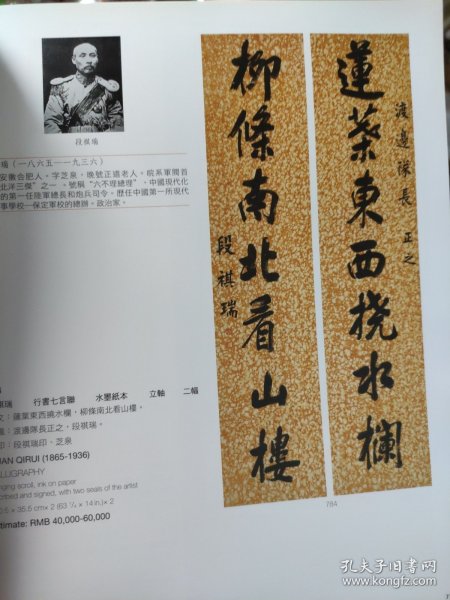 段祺瑞
瑞（一八六五—一九三六）
安徽合肥人。字芝泉，晚號正道老人。皖系軍閥首
北洋三傑”之一、號稱“六不理總理”、中國現代化
的第一任陸軍總長和炮兵司令。歷任中國第一所現代
事學校—保定軍校的總辦。政治家。
蓮葉東西撓水欄
渡邊隊長 正之
柳條南北看山樓
段祺瑞
祺瑞 行書七言聯 水墨紙本 立軸 二幅
文：蓮葉東西撓水欄，柳條南北看山樓。
渡邊隊長正之，段祺瑞。
印：段祺瑞印、芝泉
UAN QIRUI (1865-1936)
LLIGRAPHY
nging scroll, ink on paper
cribed and signed, with two seals of the artist
0.5 × 35.5 cm× 2 (63 ¼ × 14 in.)× 2
timate: RMB 40,000-60,000
784
孔夫子旧书网
www.kongfz.com